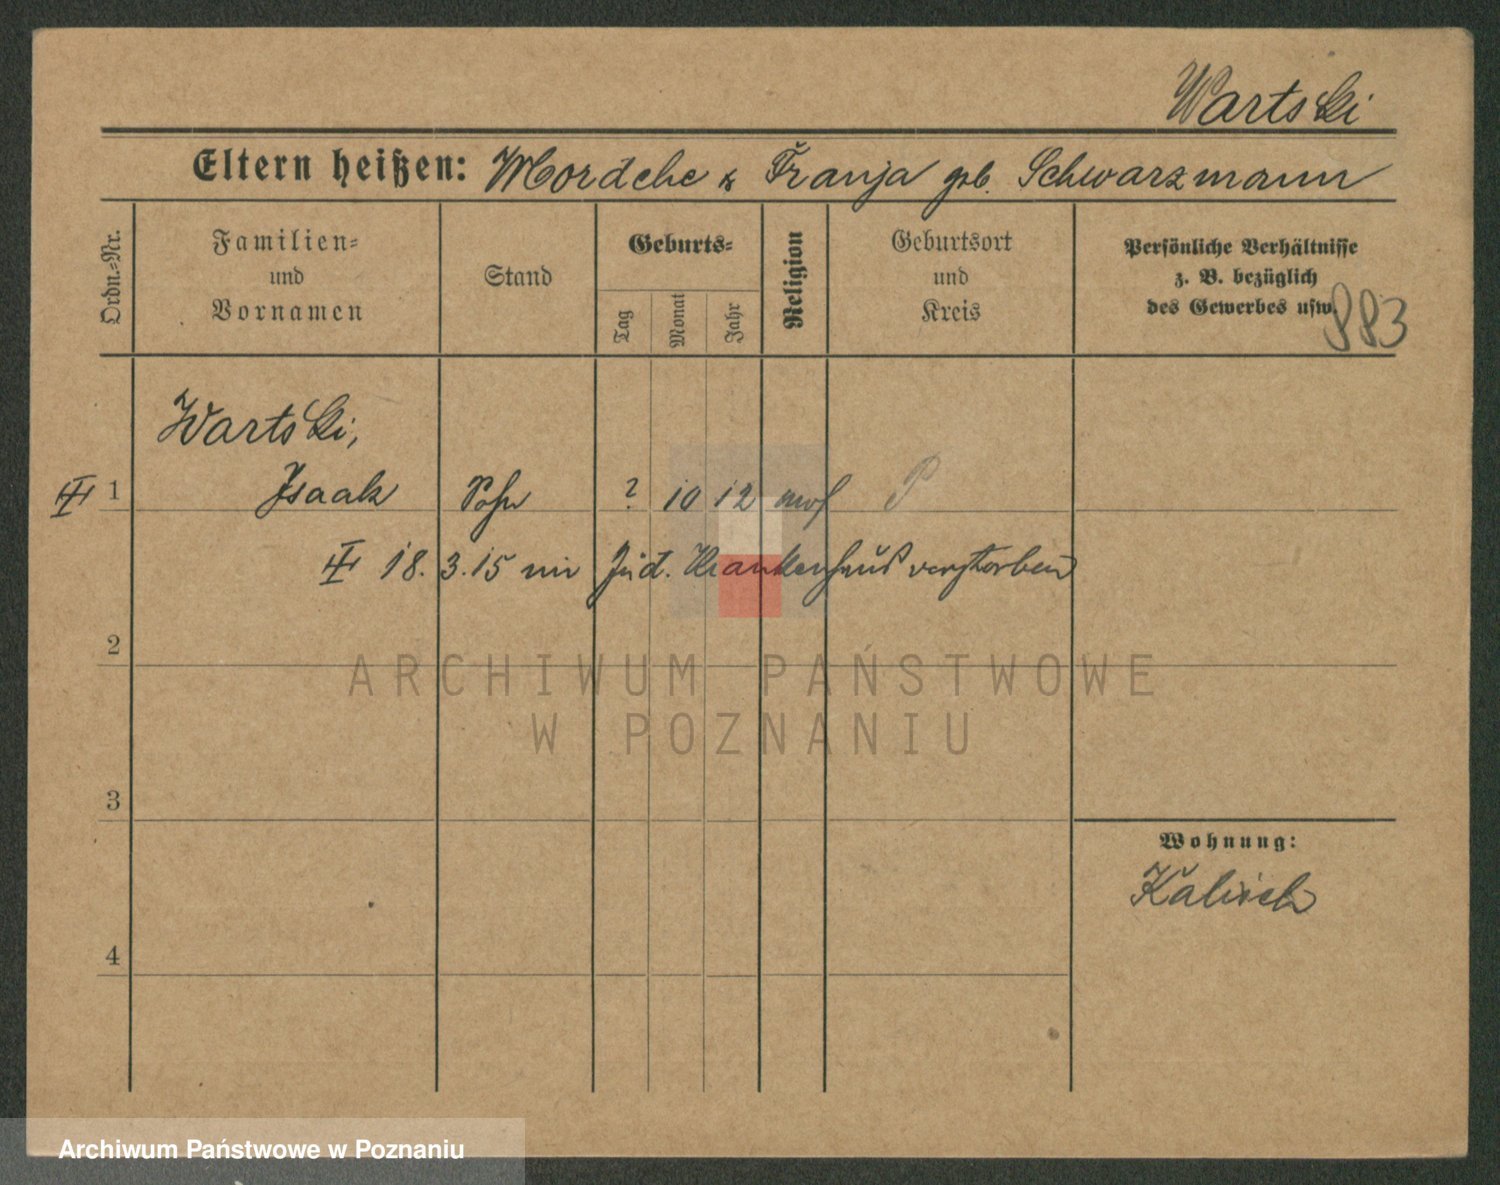 Wartski
Eltern heißen: Mordche & Franja geb. Schwarzmann
Ordn.=Nr.
Familien=
und
Vornamen
Stand
Geburts=
Tag
Monat
Jahr
Religion
Geburtsort
und
Kreis
Persönliche Verhältnisse
z. B. bezüglich
des Gewerbes usw.
883
Wartski,
1 Isaak Sohn ? 10 12 mos P
18. 3. 15 im Jüd. Krankenhaus verstorben
2
ARCHIWUM PAŃSTWOWE
W POZNANIU
3
Wohnung:
Kalisch
4
Archiwum Państwowe w Poznaniu